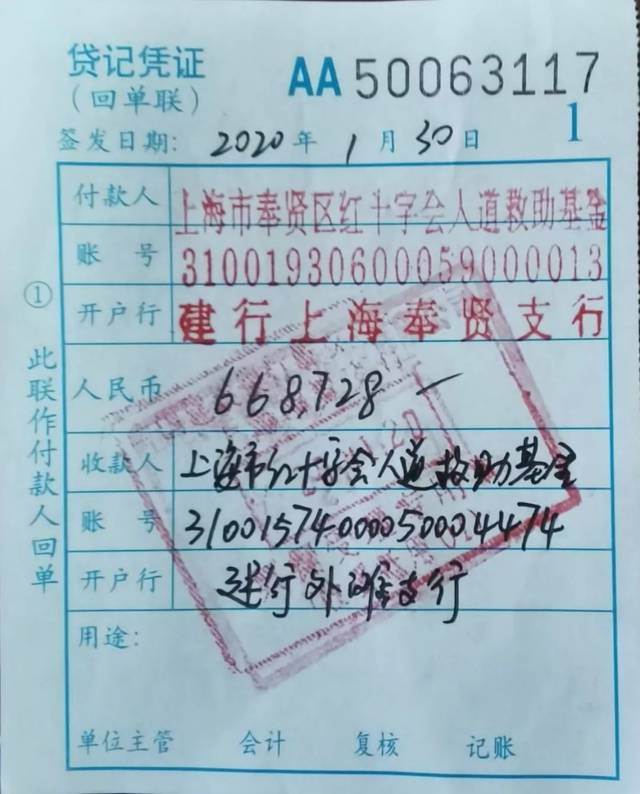 贷记凭证
AA 50063117
(回单联)
1
签发日期: 2020 年 1 月 30 日
付款人 上海市奉贤区红十字会人道救助基金
账 号 31001930600059000013
开户行 建行上海奉贤支行
人民币 668,728 —
收款人 上海市红十字会人道救助基金
账 号 31001574000050004474
开户行 建行外滩支行
用途:
单位主管 会计 复核 记账
① 此联作付款人回单